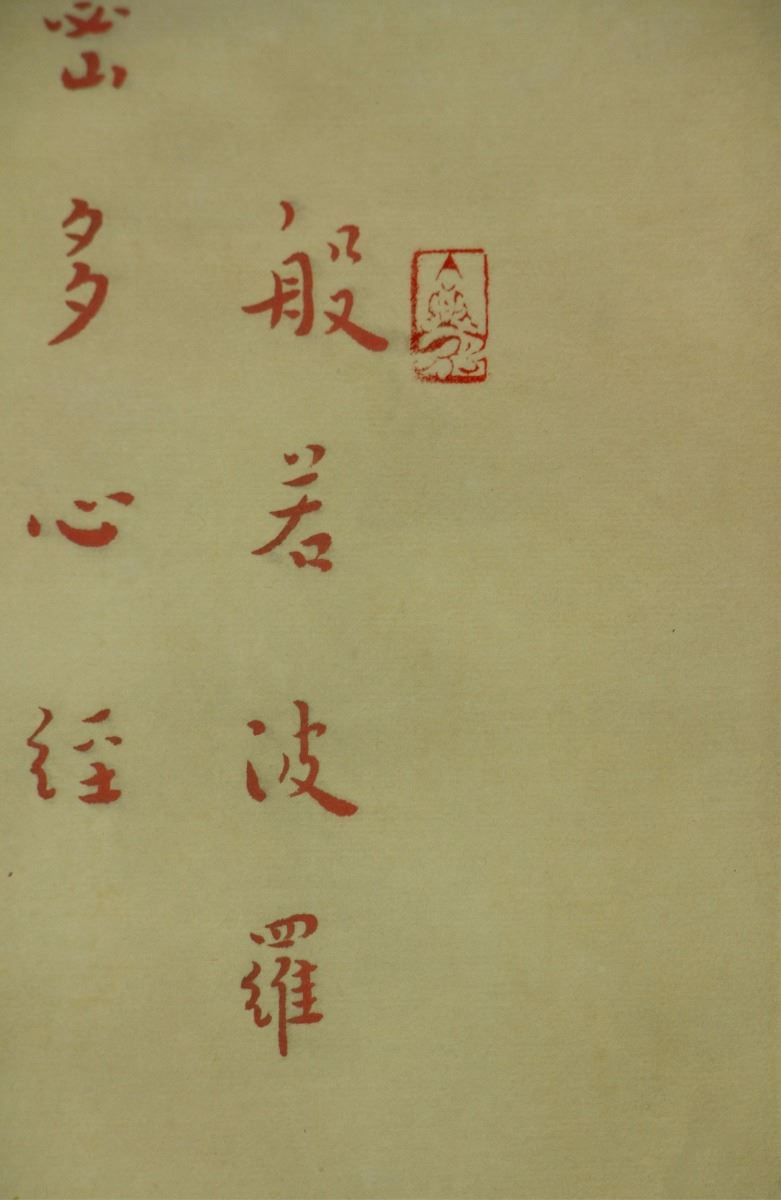 般若波羅
密多心経